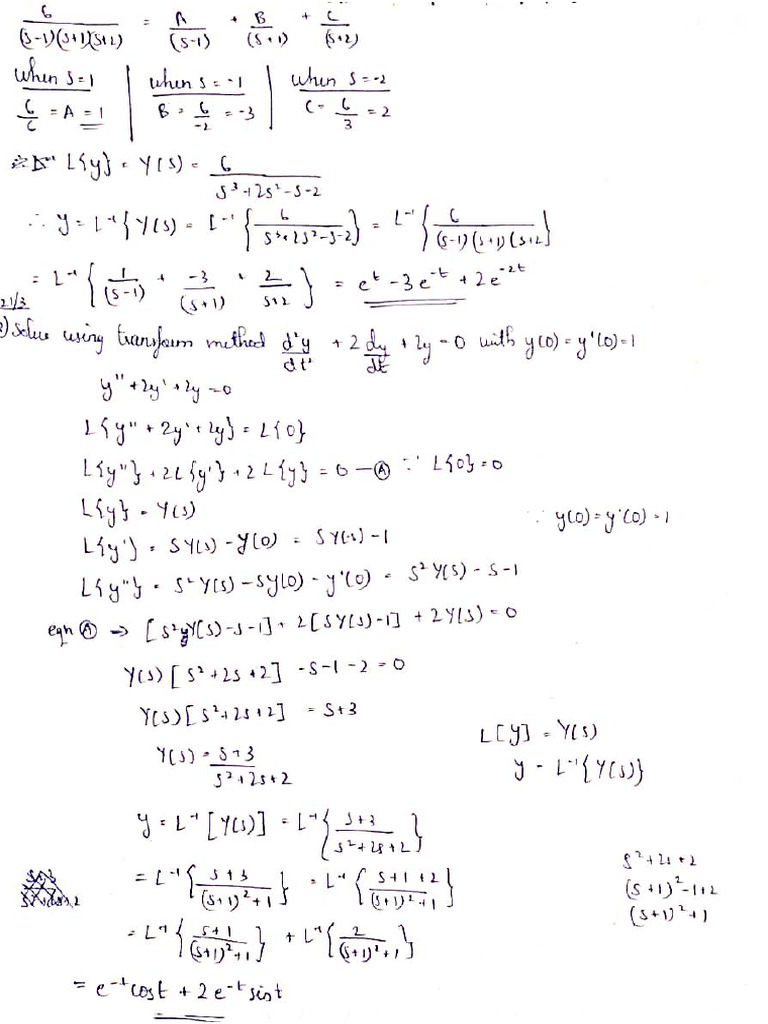 6/((s-1)(s+1)(s+2)) = A/(s-1) + B/(s+1) + C/(s+2)
when s=1 | when s=-1 | when s=-2
6/6 = A = 1 | B = 6/-2 = -3 | C = 6/3 = 2
L{y} = Y(s) = 6/(s³+2s²-s-2)
∴ y = L⁻¹{Y(s) = L⁻¹{6/(s³+2s²-s-2)} = L⁻¹{6/((s-1)(s+1)(s+2)}
= L⁻¹{1/(s-1) + -3/(s+1) + 2/(s+2)} = e^t - 3e^-t + 2e^-2t
21/3
2) Solve using transform method d²y/dt² + 2 dy/dt + 2y = 0 with y(0) = y'(0) = 1
y" + 2y' + 2y = 0
L{y" + 2y' + 2y} = L{0}
L{y"} + 2L{y'} + 2L{y} = 0 — Ⓐ ∵ L{0} = 0
L{y} = Y(s)
L{y'} = SY(s) - y(0) = SY(s) - 1 ∵ y(0) = y'(0) = 1
L{y"} = S²Y(s) - Sy(0) - y'(0) = S²Y(s) - S - 1
eqn Ⓐ ⇒ [S²Y(s) - S - 1] + 2[SY(s) - 1] + 2Y(s) = 0
Y(s)[S² + 2S + 2] - S - 1 - 2 = 0
Y(s)[S² + 2S + 2] = S + 3
Y(s) = (S+3)/(S²+2S+2)
L[y] = Y(s)
y = L⁻¹{Y(s)}
y = L⁻¹[Y(s)] = L⁻¹{(S+3)/(S²+2S+2)}
= L⁻¹{(S+3)/((S+1)²+1)} = L⁻¹{(S+1+2)/((S+1)²+1)}
= L⁻¹{(S+1)/((S+1)²+1)} + L⁻¹{2/((S+1)²+1)}
S²+2s+2
(s+1)²-1+2
(s+1)²+1
= e^-t cost + 2e^-t sint